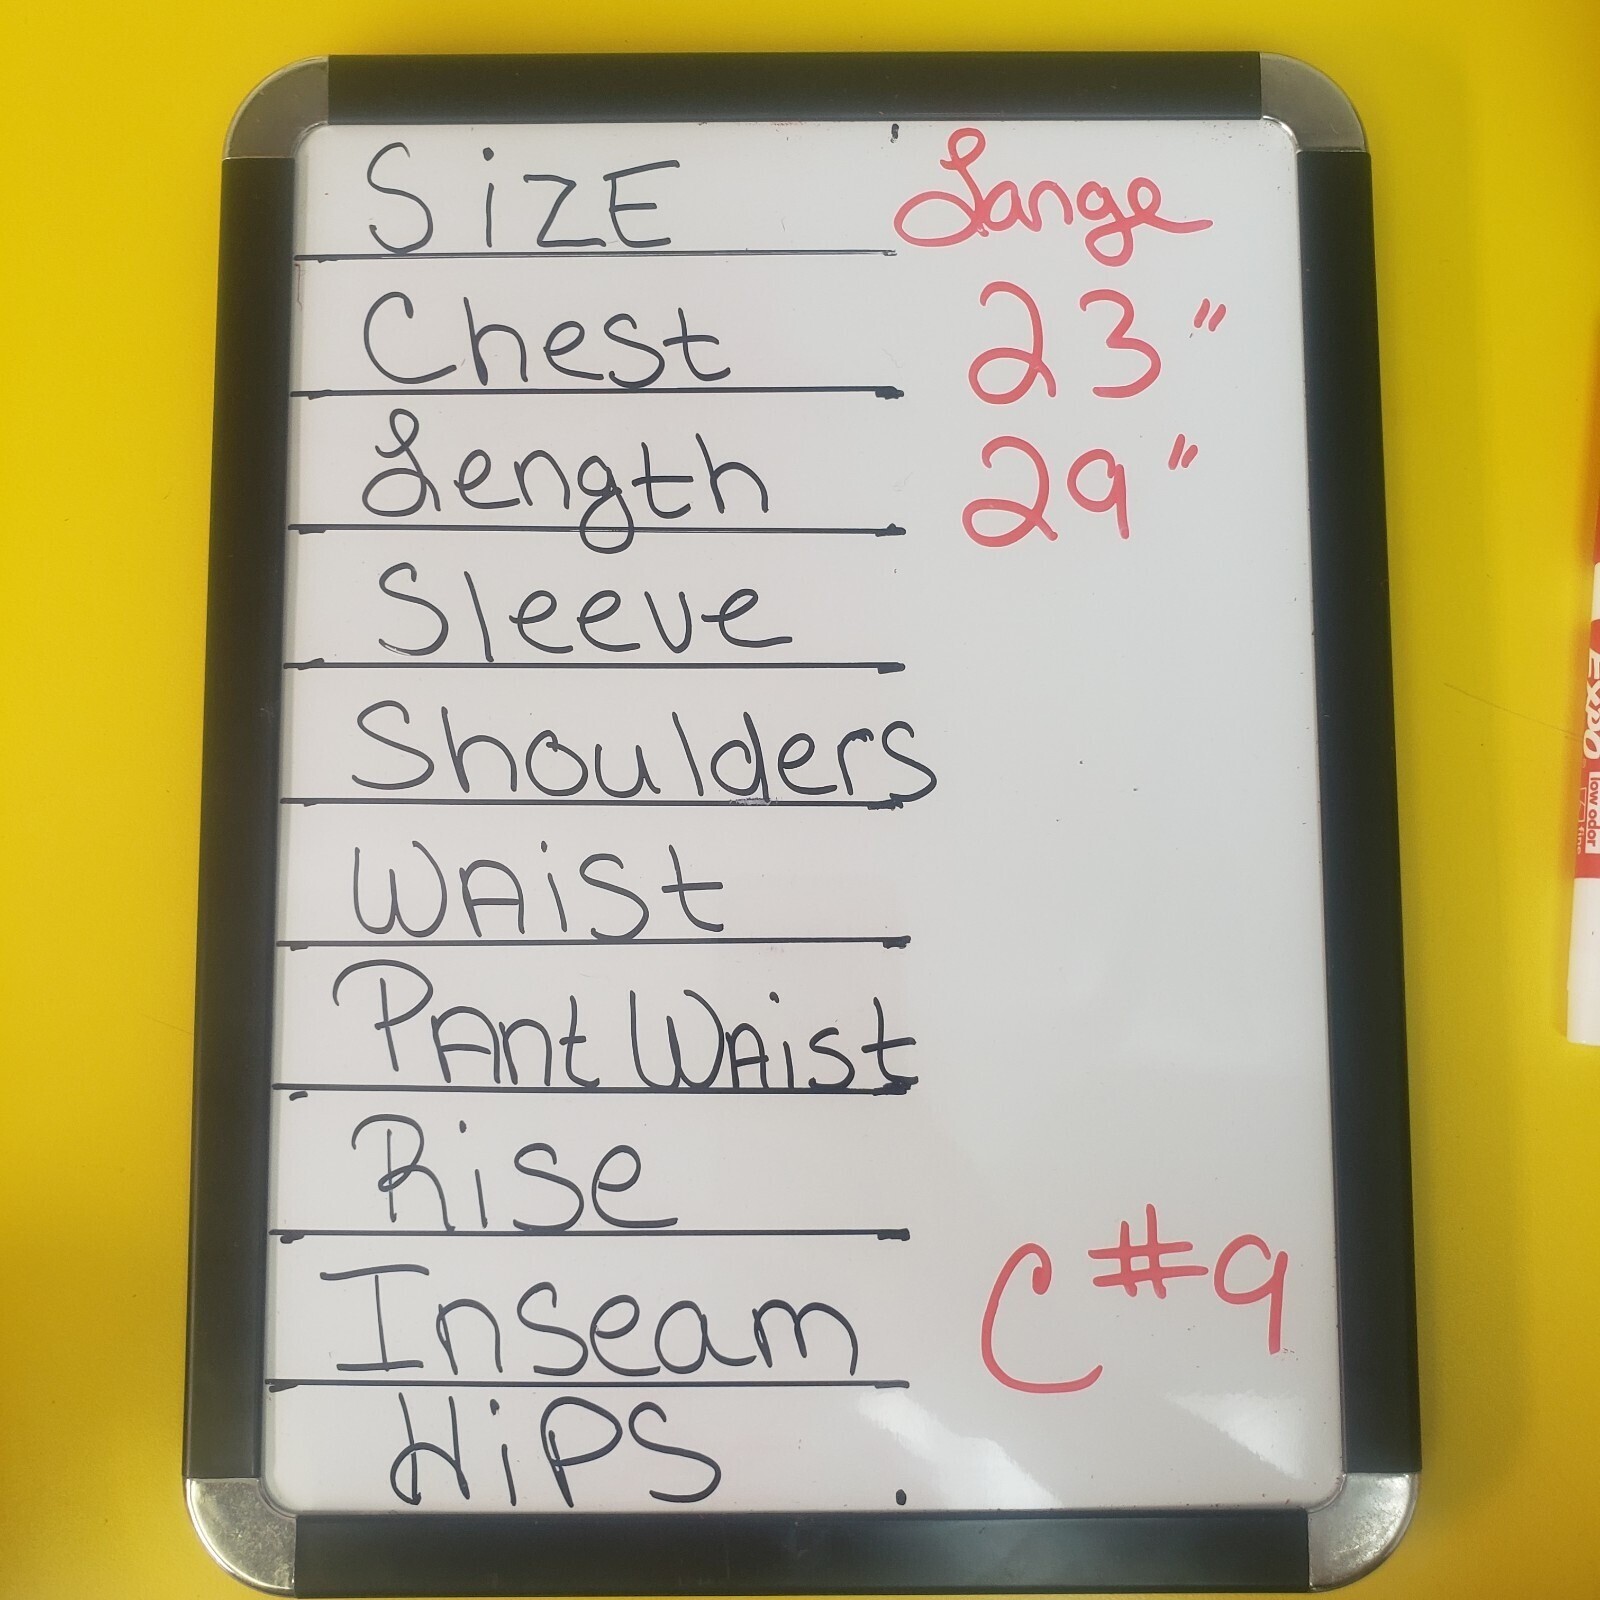 SiZE Large
Chest 23"
Length 29"
Sleeve
Shoulders
WAiSt
PAnt WAist
Rise
Inseam C#9
HiPS
Expo
low odor